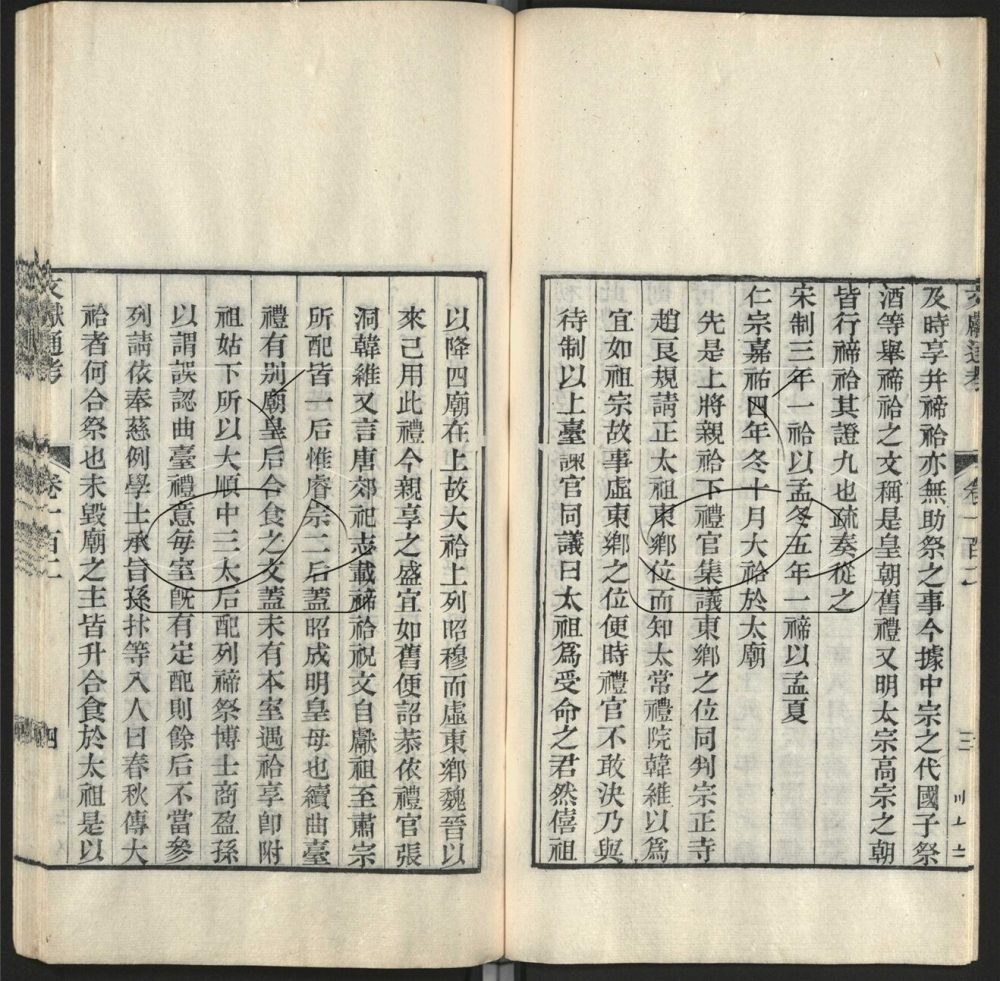 文獻通考 卷一百二 三
及時享并禘祫亦無助祭之事今據中宗之代國子祭
酒等舉禘祫之文稱是皇朝舊禮又明太宗高宗之朝
皆行禘祫其證九也疏奏從之
宋制三年一祫以孟冬五年一禘以孟夏
仁宗嘉祐四年冬十月大祫於太廟
先是上將親祫下禮官集議東鄉之位同判宗正寺
趙良規請正太祖東鄉位而知太常禮院韓維以爲
宜如祖宗故事虛東鄉之位便時禮官不敢決乃與
待制以上臺諫官同議曰太祖爲受命之君然僖祖
以降四廟在上故大祫上列昭穆而虛東鄉魏晉以
來己用此禮今親享之盛宜如舊便詔恭依禮官張
洞韓維又言唐郊祀志載禘祫祝文自獻祖至肅宗
所配皆一后惟睿宗二后蓋昭成明皇母也續曲臺
禮有別廟皇后合食之文蓋未有本室遇祫享卽附
祖姑下所以大順中三太后配列禘祭博士商盈孫
以謂誤認曲臺禮意每室旣有定配則餘后不當參
列請依奉慈例學士承旨孫抃等入人曰春秋傳大
祫者何合祭也未毀廟之主皆升合食於太祖是以
文獻通考 卷一百二 四